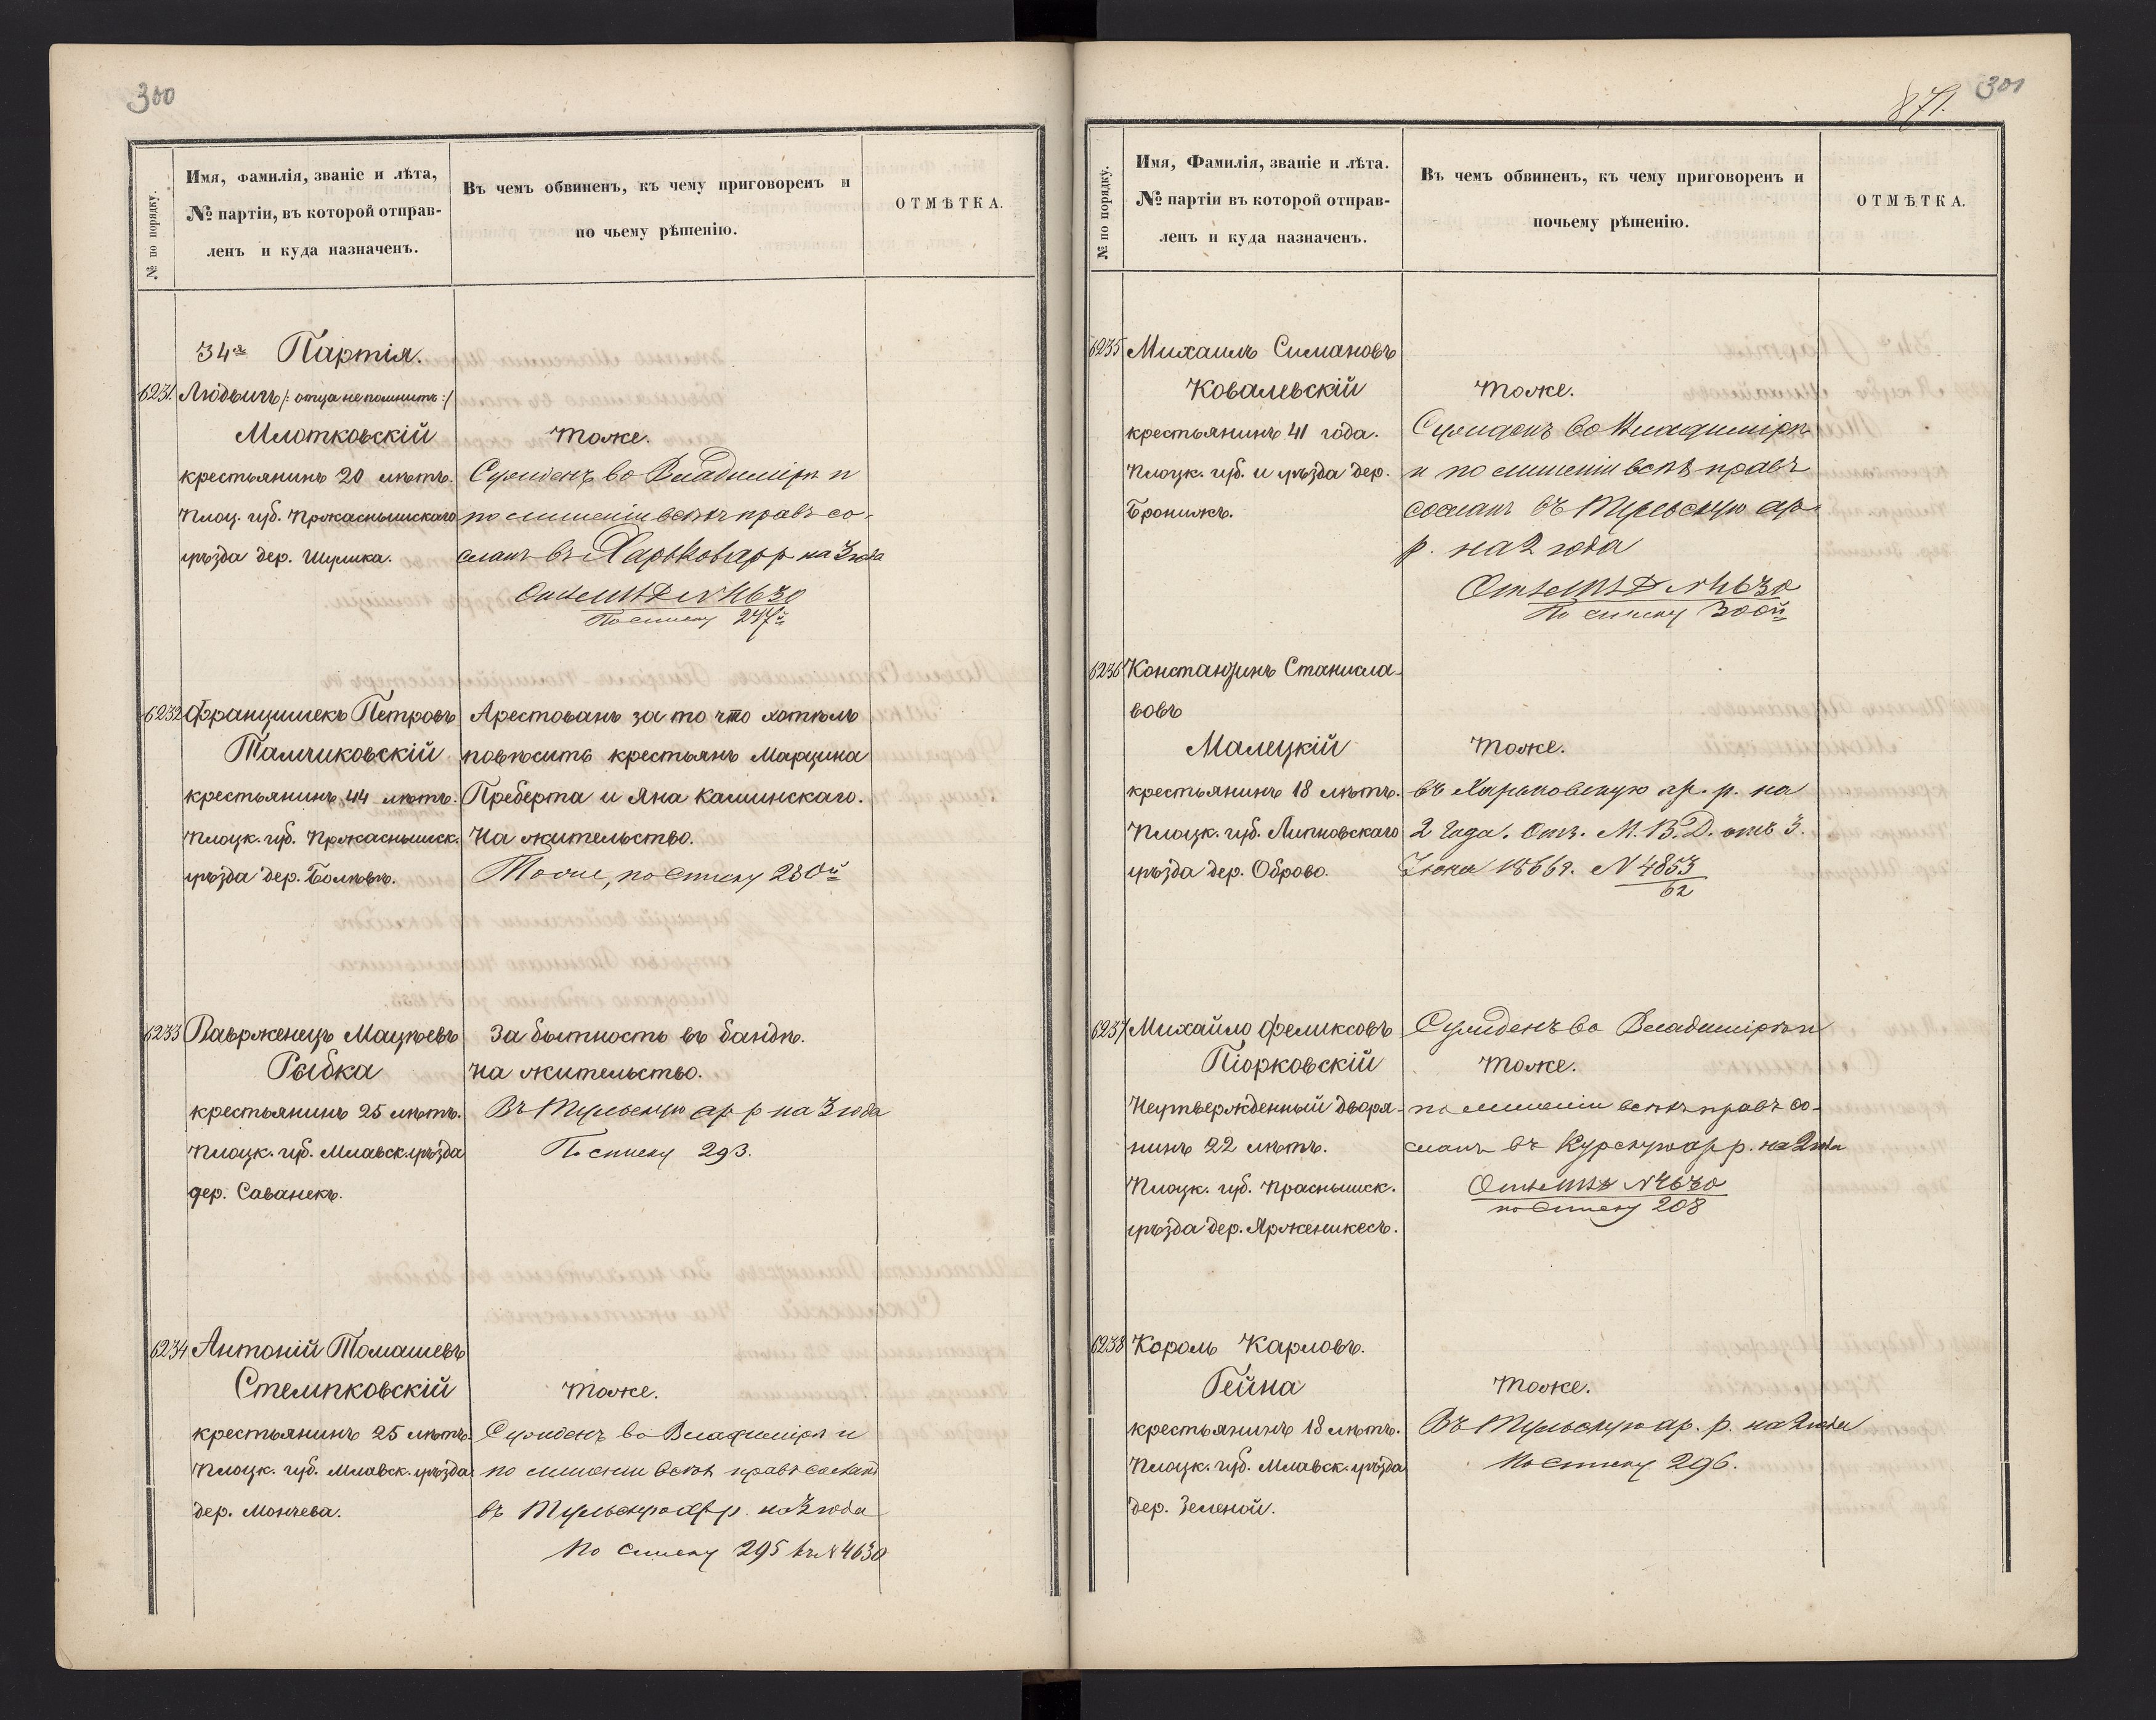 300
№ по порядку.
Имя, Фамилія, званіе и лѣта,
№ партіи, въ которой отправ-
ленъ и куда назначенъ.
Въ чемъ обвиненъ, къ чему приговоренъ и
по чьему рѣшенію.
ОТМѢТКА.
34я Партія.
6231. Людвигъ /: отца не помнитъ :/
Млотковскій
крестьянинъ 20 лѣтъ.
Плоц. губ. Пржаснышскаго
уѣзда дер. Шумка.
Тоже.
Сужденъ во Владимірѣ и
по лишеніи всѣхъ правъ со-
сланъ въ Харьков ар р на 3 года
Отн МВД N 4630
По списку
6232 Францишекъ Петровъ
Тамчиковскій
крестьянинъ 44 лѣтъ.
Плоцк. губ. Пржаснышск.
уѣзда дер.
Арестованъ за то что хотѣлъ
повѣсить крестьянъ Марцина
Преберта и Яна Каминскаго.
На жительство.
Тоже, по списку 280й
6233 Ваврженецъ Мацѣевъ
Рыбка
крестьянинъ 25 лѣтъ.
Плоцк. губ. Млавск. уѣзда
дер. Саванекъ.
За бытность въ бандѣ.
На жительство.
Въ Тульскую ар р на 3 года
По списку 293.
6234 Антоній Томашевъ
Стемпковскій
крестьянинъ 25 лѣтъ.
Плоцк. губ. Млавск. уѣзда
дер. Мончева.
Тоже.
Сужденъ во Владимірѣ и
по лишеніи всѣхъ правъ сосланъ
въ Тульскую ар р. на 3 года
По списку 295 къ N 4630
301
871.
№ по порядку.
Имя, Фамилія, званіе и лѣта.
№ партіи въ которой отправ-
ленъ и куда назначенъ.
Въ чемъ обвиненъ, къ чему приговоренъ и
почьему рѣшенію.
ОТМѢТКА.
6235 Михаилъ Симановъ
Ковалевскій
крестьянинъ 41 года.
Плоцк. губ. и уѣзда дер.
Бронижъ.
Тоже.
Сужденъ во Владимірѣ
и по лишеніи всѣхъ правъ
сосланъ въ Тульскую ар
р. на 2 года
Отн МВД N 4630
По списку 300й
6236 Константинъ Станисла-
вовъ
Малецкій
крестьянинъ 18 лѣтъ.
Плоцк. губ. Липновскаго
уѣзда дер. Оброво.
Тоже.
въ Харьковскую ар. р. на
2 года. Отн. М. В. Д. отъ 3.
Іюня 1866 г. N 4853
62
6237 Михайло Феликсовъ
Піорковскій
Неутвержденный дворя-
нинъ 22 лѣтъ.
Плоцк. губ. Праснышск.
уѣзда дер. Арженикесъ.
Сужденъ во Владимірѣ и
Тоже.
по лишеніи всѣхъ правъ со-
сланъ въ Курскую ар р. на 2 года
Отн МВД N 4630
по списку 208
6238 Король Карловъ.
Гейна
крестьянинъ 18 лѣтъ.
Плоцк. губ. Млавск. уѣзда
дер. Зеленой.
Тоже.
Въ Тульскую ар. р. на 2 года
По списку 296.